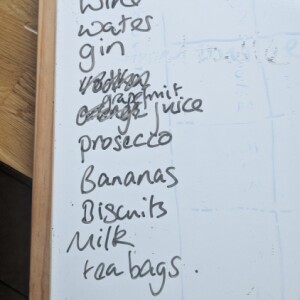 wine
water
gin
vodka
grapefruit
orange juice
prosecco
Bananas
Biscuits
Milk
teabags.